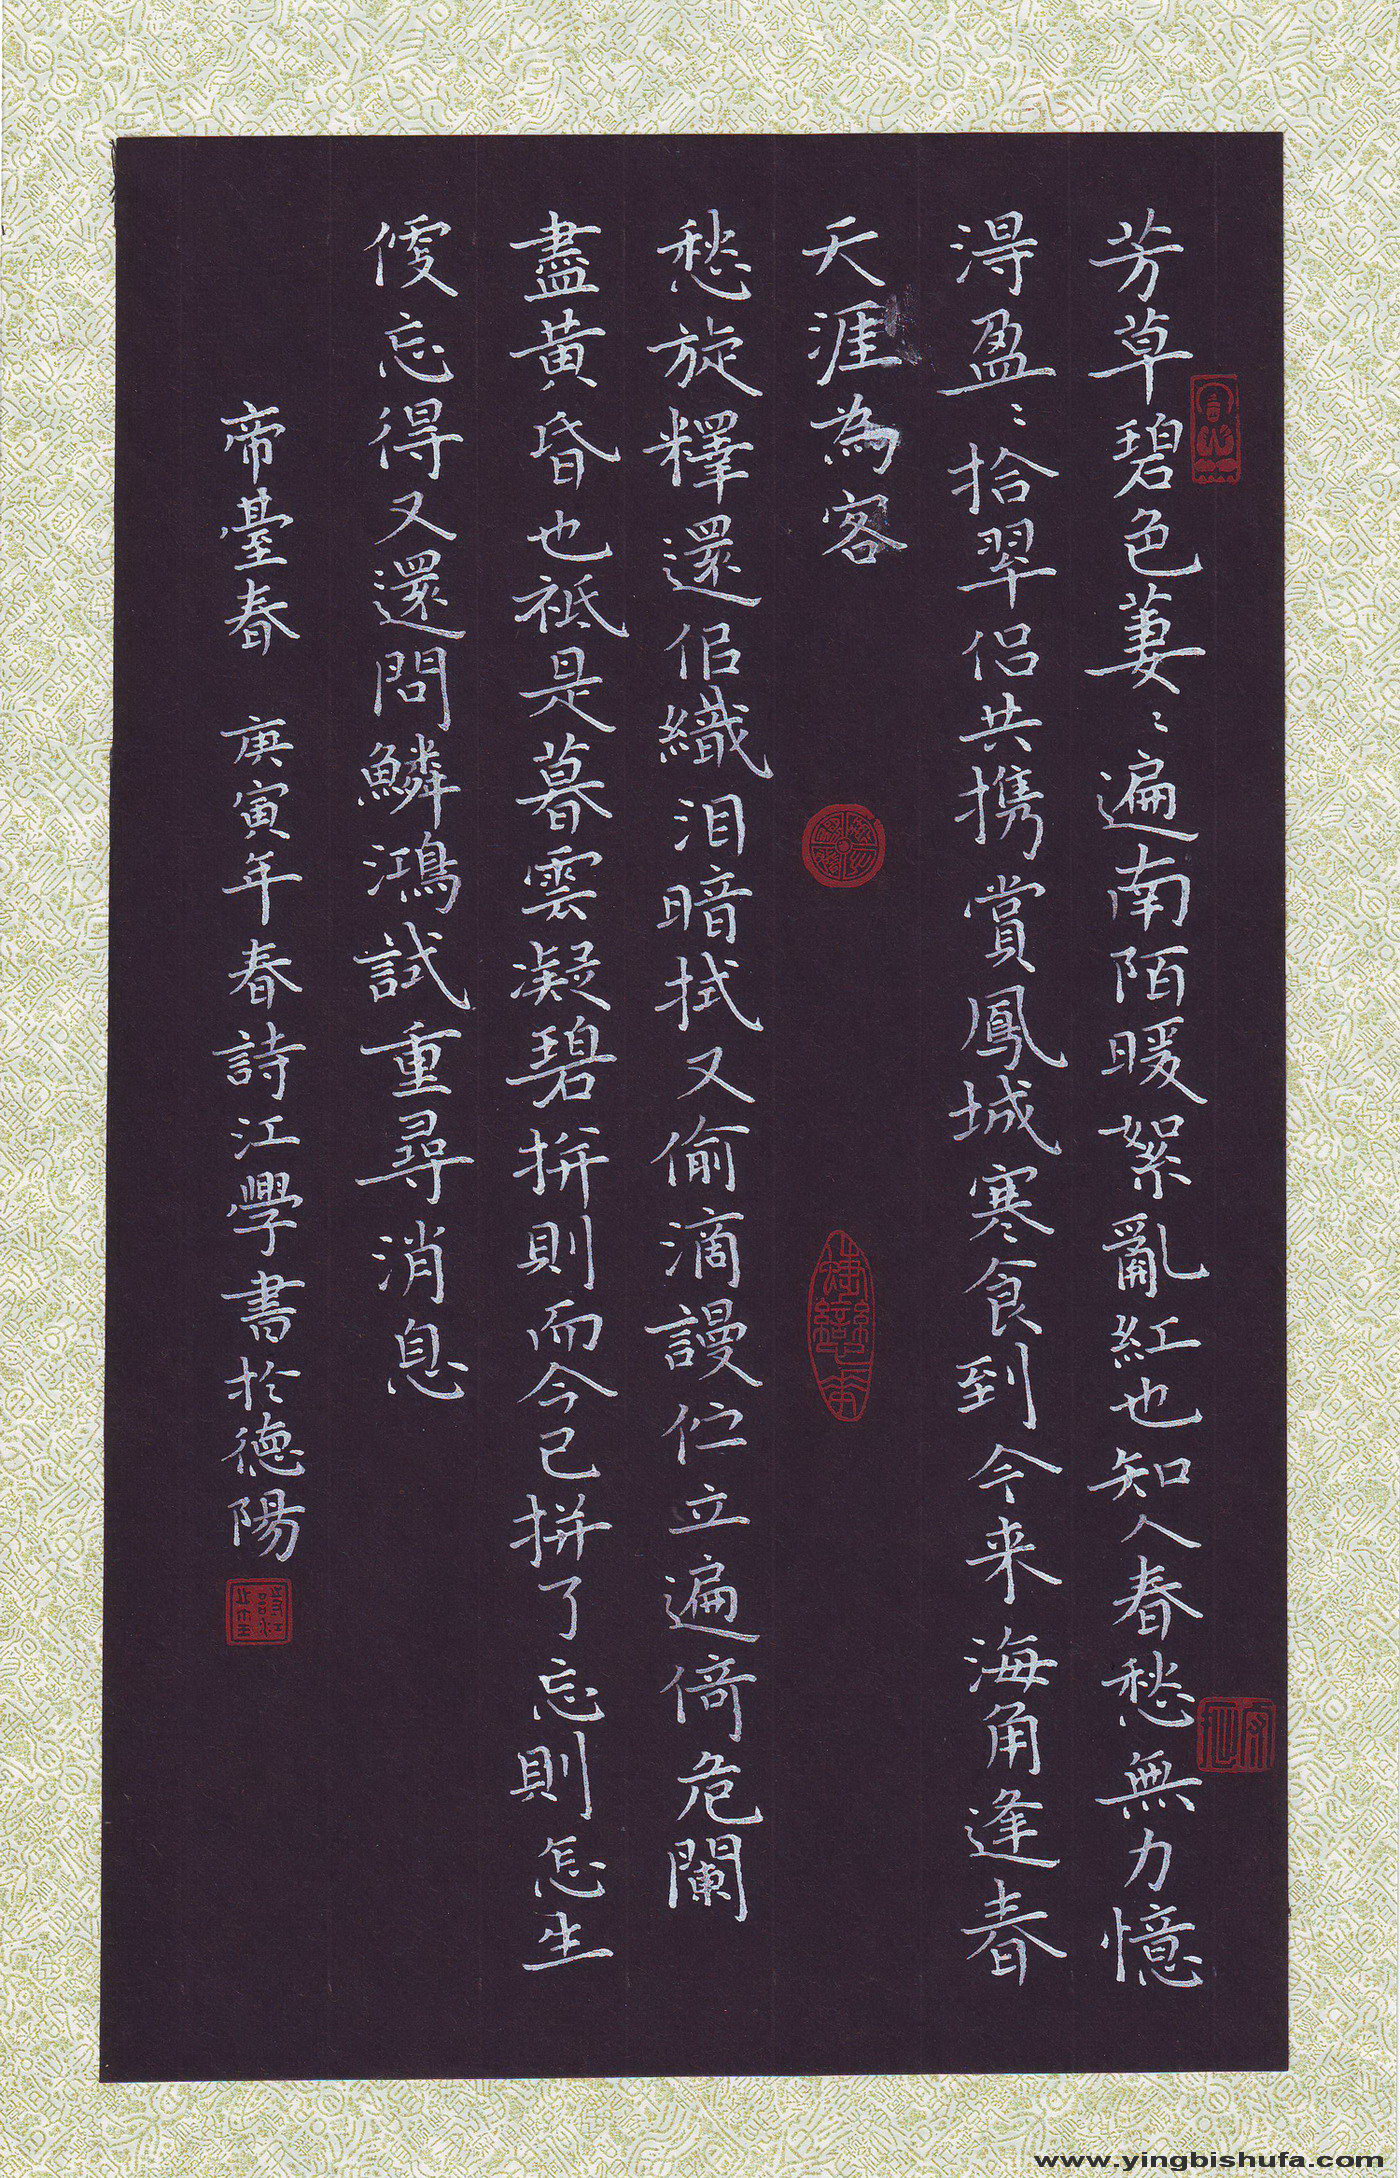 芳草碧色萋〻遍南陌暖絮亂紅也知人春愁無力憶
淂盈〻拾翠侶共携賞鳳城寒食到今来海角逢春
天涯為客
愁旋釋還佀織泪暗拭又偷滴謾伫立遍倚危闌
盡黄昏也祗是暮雲凝碧拼則而今已拼了忘則怎生
便忘得又還問鱗鴻試重尋消息
帝臺春 庚寅年春詩江學書於德陽
www.yingbishufa.com